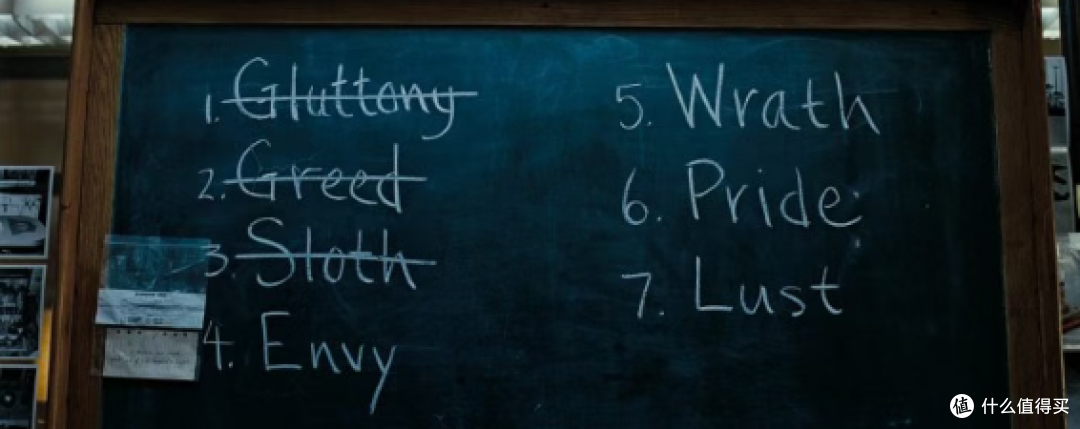 1. Gluttony
2. Greed
3. Sloth
4. Envy
5. Wrath
6. Pride
7. Lust
值 什么值得买